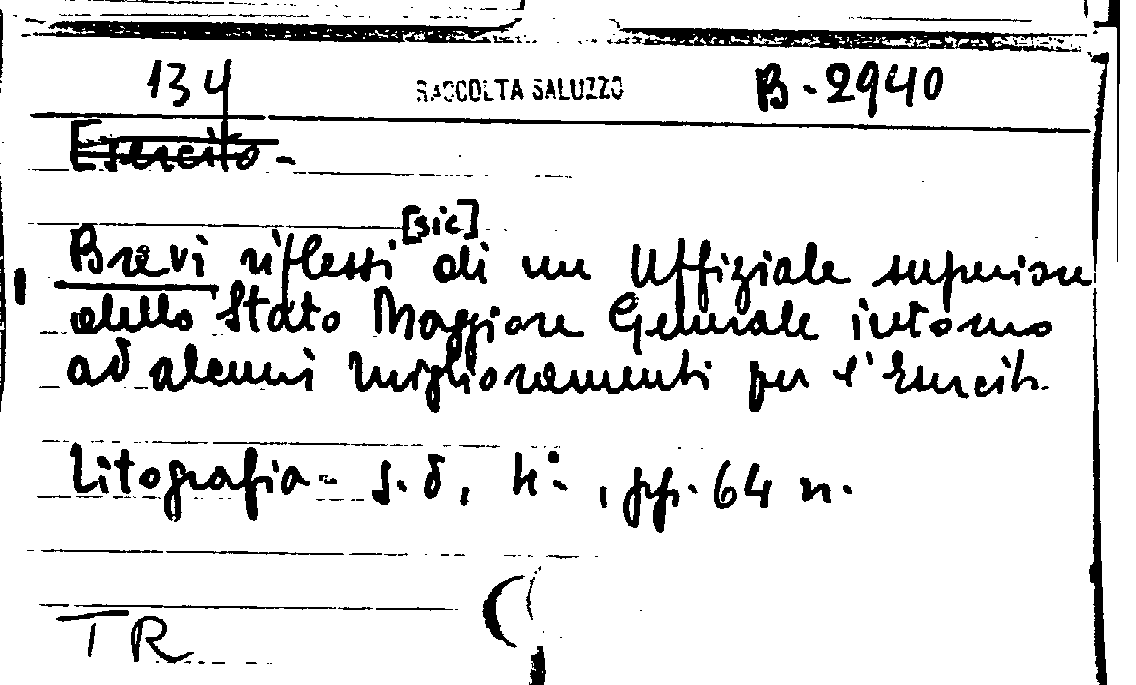 134 RACCOLTA SALUZZO B-2940
Esercito-
[sic]
Brevi riflessi di un Uffiziale superiore
dello Stato Maggiore Generale intorno
ad alcuni miglioramenti per l'Esercito.
Litografia- s.d, 4°-, pp. 64 n.
TR